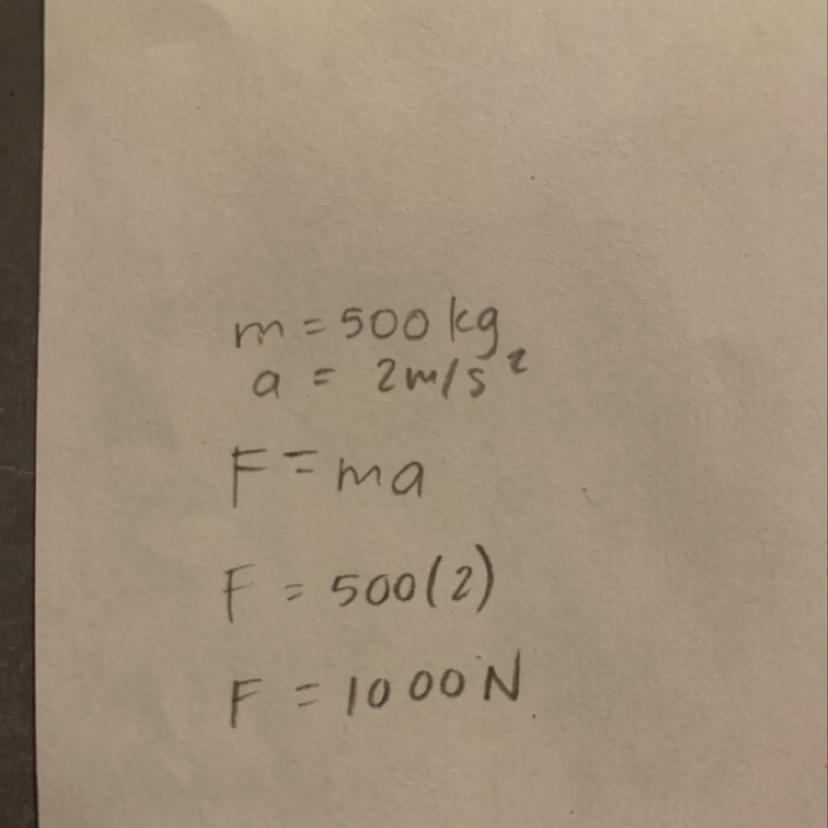 m = 500 kg
a = 2m/s²
F = ma
F = 500(2)
F = 1000N